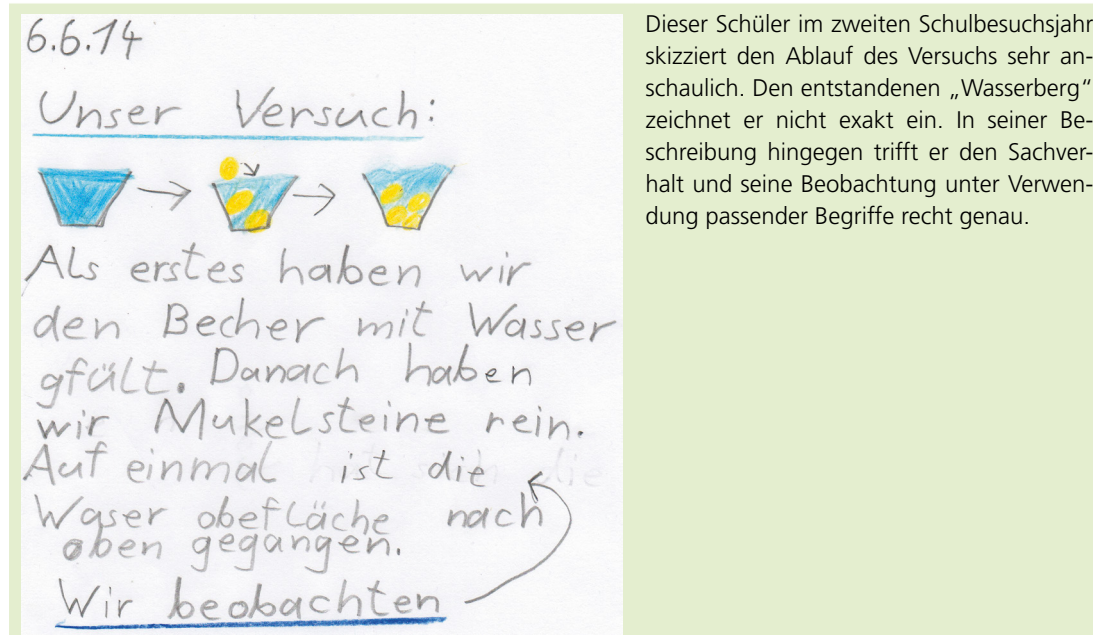 6.6.14
Unser Versuch:
Als erstes haben wir
den Becher mit Wasser
gfült. Danach haben
wir Mukelsteine rein.
Auf einmal ist die
Waser obefläche nach
oben gegangen.
Wir beobachten
Dieser Schüler im zweiten Schulbesuchsjahr
skizziert den Ablauf des Versuchs sehr an-
schaulich. Den entstandenen „Wasserberg“
zeichnet er nicht exakt ein. In seiner Be-
schreibung hingegen trifft er den Sachver-
halt und seine Beobachtung unter Verwen-
dung passender Begriffe recht genau.